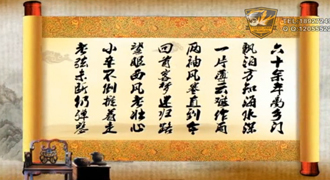 六十余年离乡门
飘泊方知海水深
一片浮云谁作雨
两袖风卷直到今
回首客梦迷归路
望眼西风老壮心
小车不倒推着走
老弦未断仍弹琴